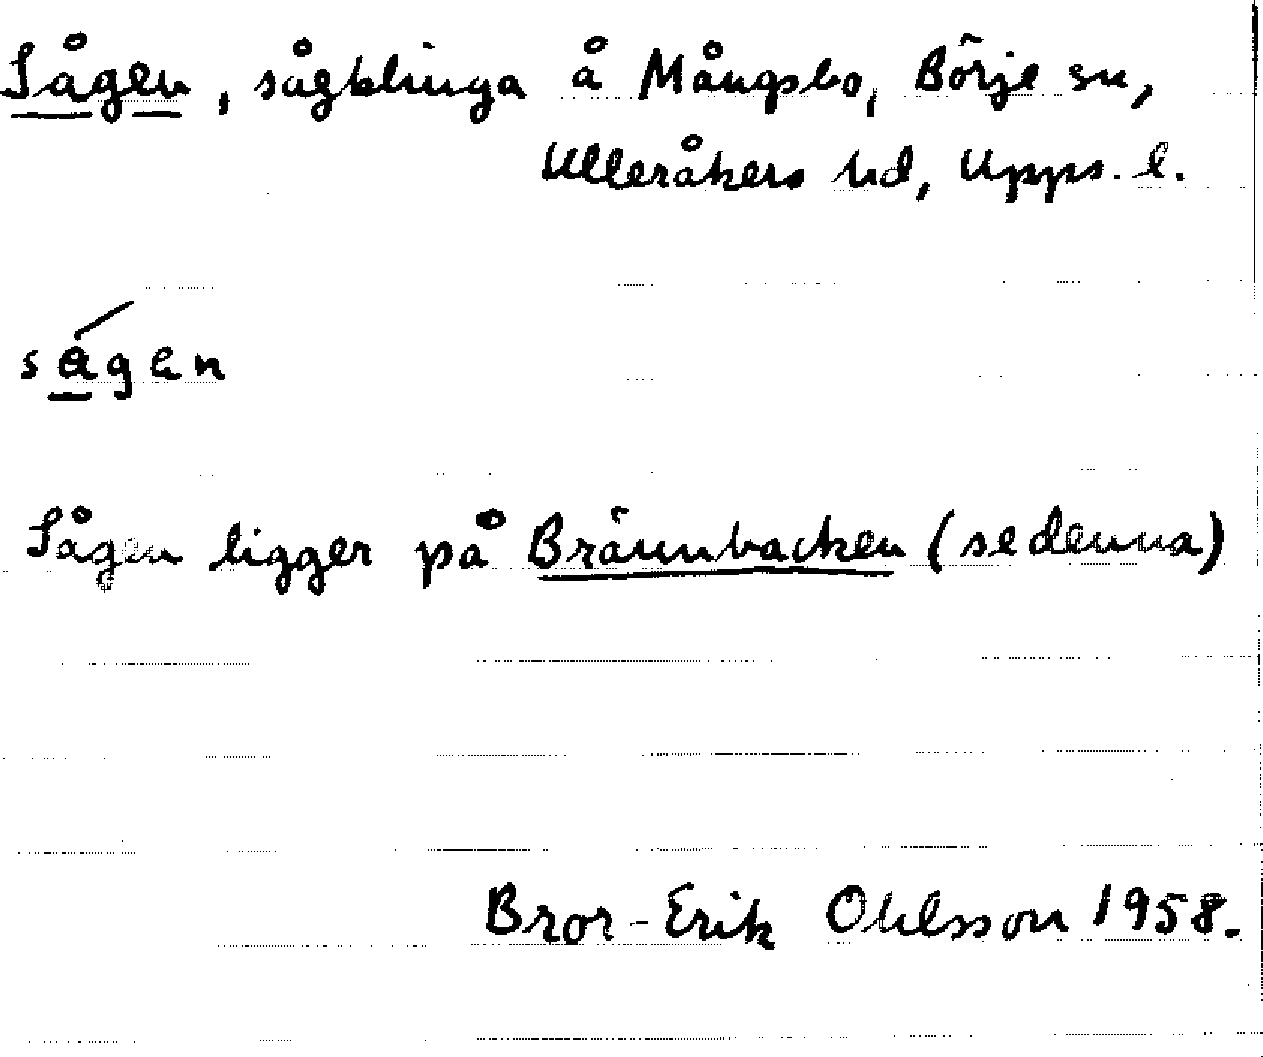 Sågen, sågklinga å Mångsbo, Börje sn,
Ulleråkers hd, Upps. l.
ságen
Sågen ligger på Brännbacken (se denna)
Bror-Erik Ohlsson 1958.